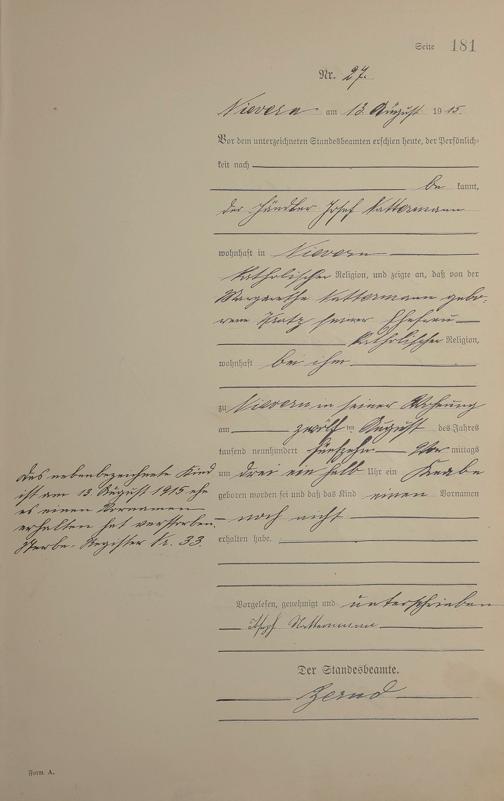 Seite 181
Nr. 27.
Nievern am 13. August 1915.
Vor dem unterzeichneten Standesbeamten erschien heute, der Persönlich-
keit nach
be kannt,
der Händler Josef Kattermann
wohnhaft in Nievern
katholischer Religion, und zeigte an, daß von der
Margarethe Kattermann gebo-
rene seiner Ehefrau
katholischer Religion,
wohnhaft bei ihm
zu Nievern in seiner Wohnung
am zwölften August des Jahres
tausend neunhundert fünfzehn Vor mittags
um drei ein halb Uhr ein Knabe
geboren worden sei und daß das Kind einen Vornamen
noch nicht
erhalten habe.
Das nebenbezeichnete Kind
ist am 13. August 1915 ehe
es einen Vornamen
erhalten hat verstorben.
Sterbe-Register Nr. 33.
Vorgelesen, genehmigt und unterschrieben
Josef Kattermann
Der Standesbeamte.
Form A.